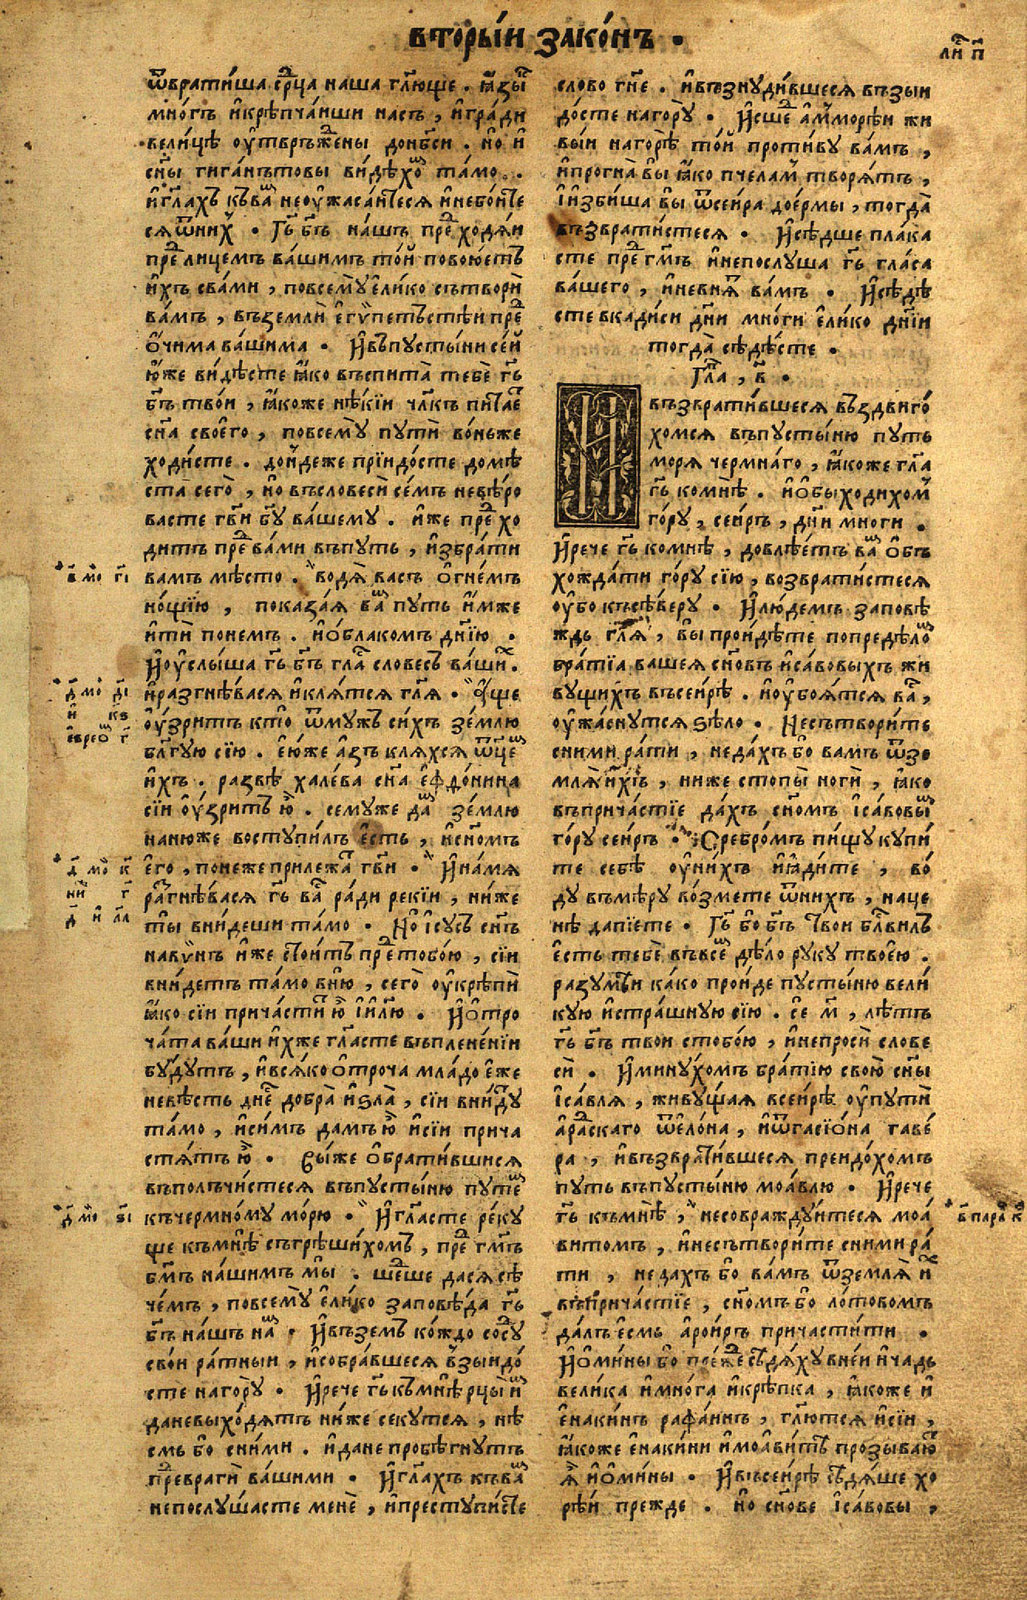 вторы́и зако́нъ .
ли́ст п҃
ѿврати́ша срⷣца наша гл҃юще . ꙗ҆зы́къ
мно́гъ и҆крѣпча́иши насъ , и҆гра́ди
вели́цѣ оу҆твръже́ны донб҃си . но и҆
сн҃ы гига́нътовы ви́дѣхоⷨ та́мо .
и҆гл҃ахъ къваⷨ неоу҆жаса́итеся и҆небо́ите
сяѿни́хъ . Гь҃ бг҃ъ на́шъ преⷣ ходя́и
преⷣ лице́мъ ва́шимъ то́и повою́етъ
и҆́хъ сва́ми , повсемꙋ̀ є҆ли́ко сътворѝ
ва́мъ , въземлѝ є҆гѵ́петьстѣи преⷣ
о҆чима ва́шима . И҆въпꙋсты́ни се́и
ю҆́же ви́дѣсте ꙗ҆́ко въспита̀ тебѐ гь҃
бг҃ъ тво́и , ꙗ҆́коже нѣ́кїи чл҃къ пита́етъ
сн҃а своего̀ , повсемꙋ̀ пꙋтѝ во́ньже
ходи́сте . до́ндеже прїидо́сте домѣ́
ста̀ сего̀ , но въсловесѝ се́мъ невѣ́ро
васте гв҃и бг҃ꙋ ва́шемꙋ . и҆́же преⷣ хо
дитъ преⷣ ва́ми въпꙋть , и҆збра́ти
в҃ мо҆ гі҃ вамъ мѣ́сто . водя̀ васъ о҆гне́мъ
но́щїю , показа́я ваⷨ пꙋть и҆́мже
и҆тѝ понемъ . и҆о́блакомъ дн҃їю .
И҆оу҆слы́ша гь҃ бг҃ъ глаⷭ слове́съ ва́шихъ .
д҃ мо҆ ді҃ и҆разгнѣ́вася и҆кля́тся гл҃я . а҆́ще
и҆ кѕ҃ оу҆́зритъ кто̀ ѿмꙋ́жъ си́хъ зе́млю
є҆вреоⷨ г҃ бл҃гꙋю сїю . ею́же а҆́зъ кля́хся ѿце́мъ
и҆́хъ . ра́звѣ хале́ва сн҃а є҆фдо́нина
сїи оу҆́зритъ ю҆̀ . семꙋ́же даⷨ зе́млю
наню́же востꙋпи́лъ є҆́сть , и҆сн҃омъ
д҃ мо҆ к҃ є҆го̀ , поне́же прилежа̀ гв҃и . И҆на́мя
ни҆ г҃ разгнѣ́вася гь҃ ваⷭ ра́ди реки́и , ни́же
д҃ и҆ ла҃ ты̀ вни́деши та́мо . Но і҆сꙋ́съ сн҃ъ
навѵ́нъ и҆́же стои́тъ преⷣтобо́ю , сїи
вни́детъ та́мо вню̀ , сего̀ оу҆крѣпѝ
ꙗ҆́ко сїи прича́ститъ ю҆̀ і҆и҃лю . И҆о҆тро
ча́та ва́ши и҆́хже гла́сте въплене́нїи
бꙋ́дꙋтъ , и҆вся́ко о҆троча мла́до є҆́же
невѣ́сть днеⷭ добра̀ и҆ѕла̀ , сїи вни́дꙋтъ
та́мо , и҆си́мъ да́мъ ю҆̀ и҆сїи прича
стя́тъ ю҆̀ . Вы́же о҆брати́вшися
въполъчи́стеся въпꙋсты́ню пꙋте́мъ
д҃ мо҆ ѕі҃ къчермно́мꙋ мо́рю . И҆гла́сте ре́кꙋ
ще къмнѣ̀ съгрѣши́хомъ , преⷣ гм҃ъ
бм҃ъ на́шимъ мы̀ . шеⷣше дася сѣ
че́мъ , повсемꙋ̀ є҆ли́ко заповѣ́да гь҃
бг҃ъ на́шъ наⷨ . И҆въземъ ко́ждо сосꙋⷣ
сво́и ра́тныи , и҆собра́вшеся взыидо́
сте наго́рꙋ . И҆рече гь҃ къмнѣ̀ рцы̀ и҆мъ
даневыхо́дятъ ни́же секꙋ́тся , нѣ
смь бо сни́ми . и҆дане пробѣ́гнꙋтъ
преⷣврагѝ ва́шими . И҆гл҃ахъ къваⷨ
непослꙋ́шасте менѐ , и҆престꙋпи́сте
слово гн҃е . и҆възнꙋди́вшеся възыи
до́сте наго́рꙋ . И҆сше́ⷣ а҆ммо́рѣи жи
выи наго́рѣ то́и проти́вꙋ ва́мъ ,
и҆прогна̀ вы ꙗ҆́ко пче́ламъ творя́тъ ,
і҆изби́ша вы ѿсеи́ра дое́рмы , тогда̀
възврати́стеся . И҆сѣ́дше пла́ка
сте преⷣ гм҃ъ и҆непослꙋ́ша гь҃ гла́са
ва́шего , и҆невня́т ва́мъ . И҆сѣдѣ́
сте вка́диси дн҃и мно́ги є҆ли́ко дн҃їи
тогда̀ сѣдѣ́сте .
Гла , в҃ .
И
възврати́вшеся въздвиго́
хомся въпꙋсты́ню пꙋть
моря чермна́го , ꙗ҆́коже гла
гь҃ комнѣ̀ . и҆о҆быходи́хомъ
го́рꙋ , сеи́ръ , дн҃и мно́ги .
И҆рече гь҃ комнѣ̀ , довлѣ́етъ ваⷨ о҆бъ
хожда́ти го́рꙋ сїю̀ , возврати́стеся
оу҆́бо къ сѣ́верꙋ . И҆лю́демъ заповѣ
ждь гл҃я , вы̀ про́идѣте попредѣ́лоⷨ
бра́тїа вашея сн҃овъ и҆са́вовыхъ жи
вꙋщихъ въсеи́рѣ . и҆оу҆боя́тся ваⷭ ,
оу҆жа́снꙋтся ѕѣло . Несътвори́те
сни́ми ра́ти , неда́хъ бо вамъ ѿзе
мля̀ и҆́хъ , ни́же стопы̀ ногѝ , ꙗ҆́ко
въприча́стїе да́хъ сн҃омъ і҆са́вовыⷨ
го́рꙋ сеи́ръ . Сребро́мъ пи́щꙋ кꙋпи́
те себѣ̀ оу҆ни́хъ и҆ꙗ҆ди́те , во́
дꙋ въмѣ́рꙋ во́змете ѿни́хъ , наце
нѣ̀ дапїе́те . Гь҃ бо бг҃ъ тво́и бл҃гви́лъ
є҆́сть тебѐ въвсеⷨ дѣ́ло рꙋкꙋ твое́ю .
разꙋмѣ́и ка́ко про́иде пꙋсты́ню вели́
кꙋю и҆стра́шнꙋю сїю . се м҃ , лѣ́тъ
гь҃ бг҃ъ тво́и стобо́ю , и҆непросѝ слове
сѝ . И҆минꙋ́хомъ бра́тїю свою̀ сн҃ы
і҆са́вля , живꙋ́щая всеи́рѣ оу҆пꙋтѝ
а҆ра́скаго ѿело́на , и҆ѿгасїо́на гаве́
ра , и҆възврати́вшеся преидо́хомъ
пꙋть въпꙋсты́ню моа́влю . И҆рече
гь҃ къмнѣ̀ , несоражꙋ́итеся моа҆ в҃ парⷧ к҃
витомъ , и҆несътвори́те сни́ми ра́
ти , неда́хъ бо ва́мъ ѿземля̀ и҆́хъ
въприча́стїе , сн҃омъ бо ло́товомъ
да́лъ є҆́смь а҆рои́ръ причасти́ти .
И҆о҆ми́ны бо пре́жⷣе сѣдя́хꙋ вне́и и҆чадь
вели́ка и҆мно́га и҆крѣ́пка , ꙗ҆́коже и҆
є҆на́кинъ рафа́инъ , гл҃ются и҆сїи ,
ꙗ҆́коже є҆на́кини и҆моа́витъ прозыва́ю
тъ и҆о҆ми́ны . И҆въсеи́рѣ сѣдя́ше хо
рѣ́и прежде . но сн҃ове і҆са́вовы ,